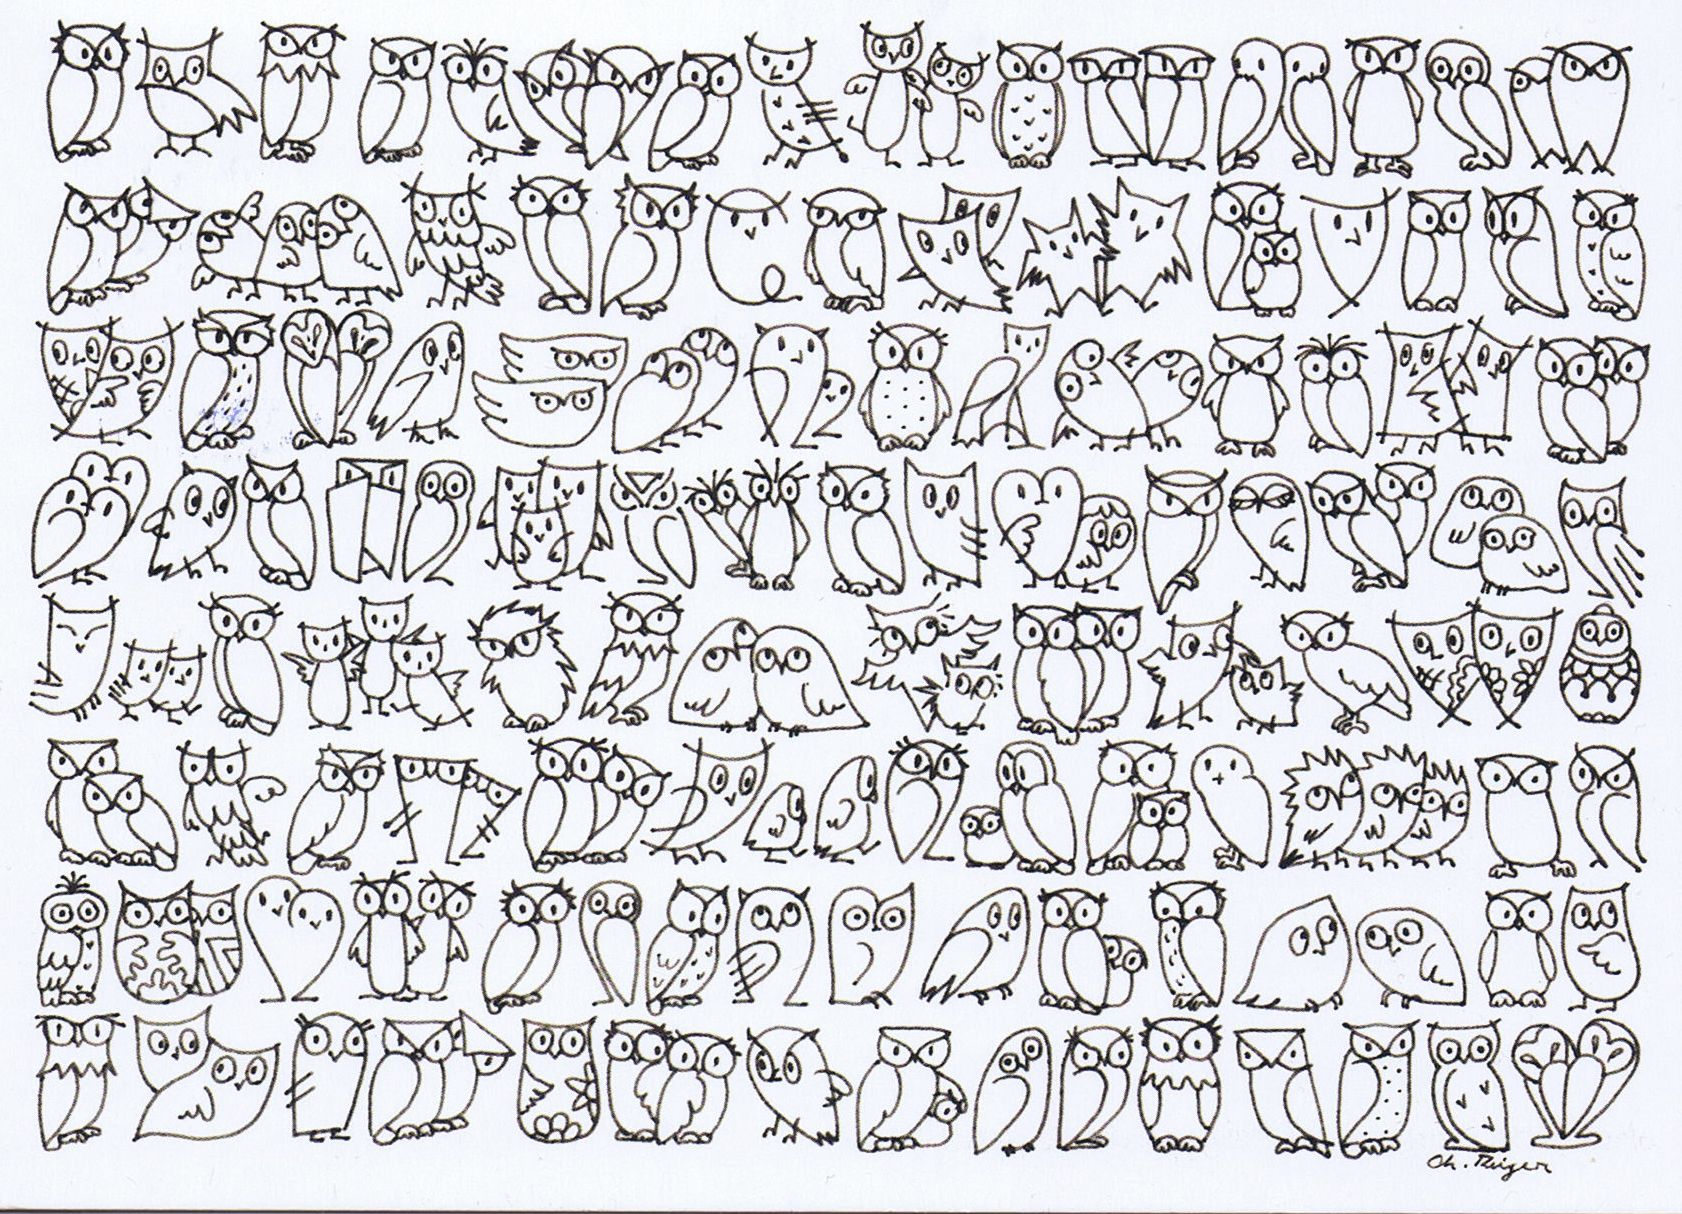 Ch. Rüger